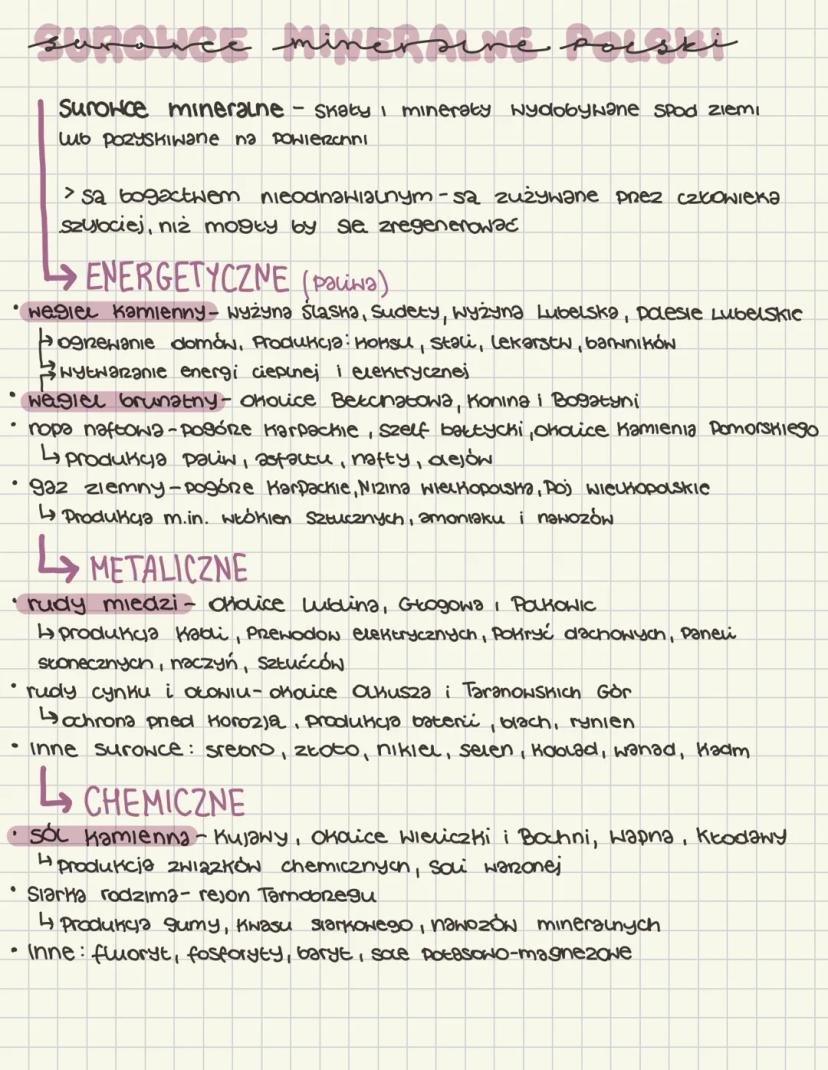 SUROWCE MINERALNE POLSKI
Surowce mineralne – skały i minerały wydobywane spod ziemi
lub pozyskiwane na powierzchni
> są bogactwem nieodnawialnym – są zużywane przez człowieka
szybciej, niż mogły by się zregenerować
↳ ENERGETYCZNE (paliwa)
• węgiel kamienny – Wyżyna Śląska, Sudety, Wyżyna Lubelska, Polesie Lubelskie
↳ ogrzewanie domów, Produkcja: koksu, stali, lekarstw, barwników
↳ wytwarzanie energi cieplnej i elektrycznej
• węgiel brunatny – okolice Bełchatowa, Konina i Bogatyni
• ropa naftowa – pogórze Karpackie, szelf bałtycki, okolice Kamienia Pomorskiego
↳ produkcja paliw, asfaltu, nafty, olejów
• gaz ziemny – pogórze Karpackie, Nizina Wielkopolska, Poj Wielkopolskie
↳ Produkcja m.in. włókien sztucznych, amoniaku i nawozów
↳ METALICZNE
• rudy miedzi – okolice Lublina, Głogowa i Polkowic
↳ produkcja kabli, przewodow elektrycznych, pokryć dachowych, paneli
słonecznych, naczyń, sztućców
• rudy cynku i ołowiu – okolice Olkusza i Taranowskich Gór
↳ ochrona przed korozją, produkcja baterii, blach, rynien
• Inne surowce: srebro, złoto, nikiel, selen, kobalad, wanad, kadm
↳ CHEMICZNE
• sól kamienna – Kujawy, okolice Wieliczki i Bochni, Wapna, Kłodawy
↳ produkcja związków chemicznych, soli warzonej
• Siarka rodzima – rejon Tarnobrzegu
↳ Produkcja gumy, kwasu siarkowego, nawozów mineralnych
• Inne: fluoryt, fosforyty, baryt, sole potasowo-magnezowe